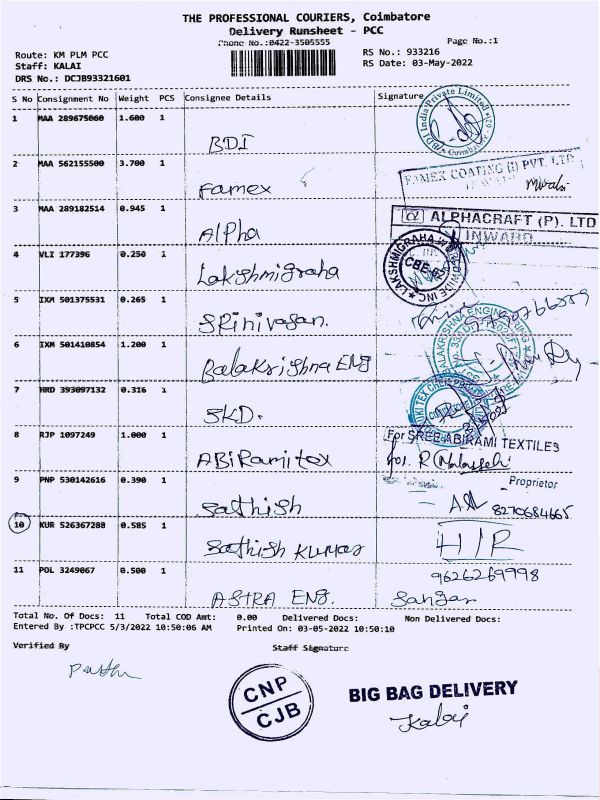 THE PROFESSIONAL COURIERS, Coimbatore
Delivery Runsheet - PCC
Phone No.:0422-3505555
Page No.:1
Route: KM PLM PCC
RS No.: 933216
Staff: KALAI
RS Date: 03-May-2022
DRS No.: DCJB93321601
S No Consignment No Weight PCS Consignee Details Signature
1 MAA 289675060 1.600 1
BDI
BDI India Private Limited
Coimbatore
2 MAA 562155500 3.700 1
Famex
FAMEX COATING (I) PVT. LTD
3 MAA 289182514 0.945 1
Alpha
ALPHACRAFT (P). LTD
INWARD
4 VLI 177396 0.250 1
Lakshmigraha
LAKSHMIGRAHA WORLDWIDE INC
CBE
5 IXM 501375531 0.265 1
Srinivasan.
6 IXM 501410854 1.200 1
Balakrishna ENG
BALAKRISHNA ENGINEERING
7 HRD 393097132 0.316 1
SKD.
8 RJP 1097249 1.000 1
ABiRami tex
For SREE ABIRAMI TEXTILES
Proprietor
9 PNP 530142616 0.390 1
Sathish
8270684665
10 KUR 526367288 0.585 1
Sathish Kumar
H/R
9626269998
11 POL 3249067 0.500 1
ASTRA ENG.
Total No. Of Docs: 11 Total COD Amt: 0.00 Delivered Docs: Non Delivered Docs:
Entered By :TPCPCC 5/3/2022 10:50:06 AM Printed On: 03-05-2022 10:50:10
Verified By
Staff Signature
CNP
CJB
BIG BAG DELIVERY
Kalai